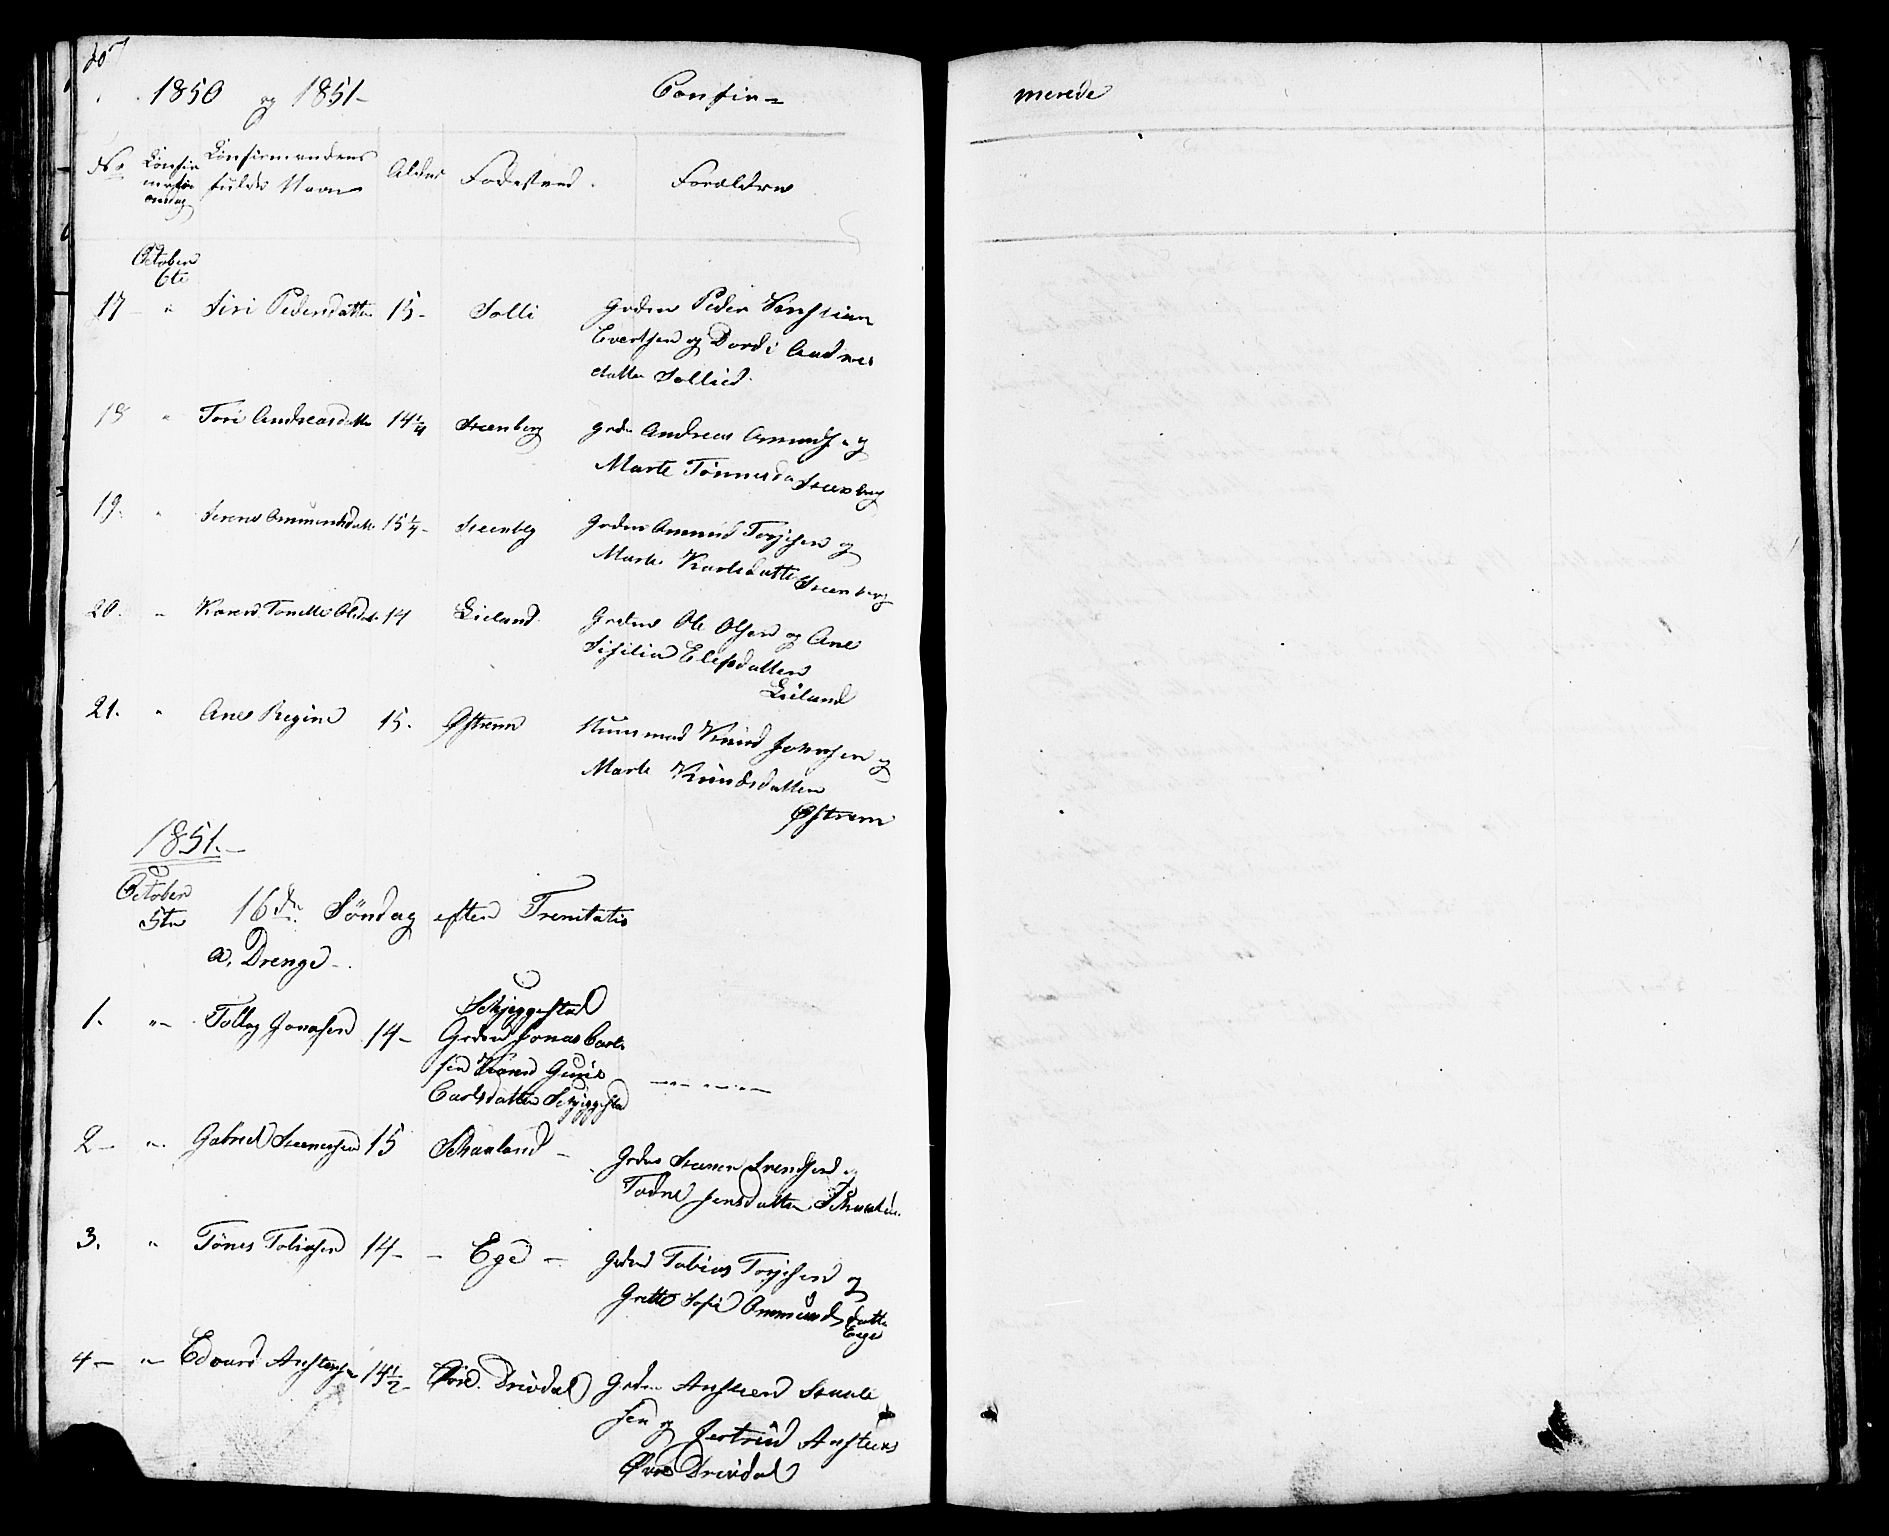 1850 og 1851 – Confir=
merede
No Confir Confirmandens Alder Fødested. Forældre
mations fulde Navn
dag
October
6te
17 – " Siri Pedersdatter 15 – Solli Grdm Peder
Evertsen og Dordi Andreas
datter Sollied.
18 " Tori Andreasdatter 14¼ Steenberg grdm Andreas Amunds. og
Marte Tønnesda Steenberg
19. " Serene Ammundsdatter 15¼ – Steenberg Grdm Ammund Torjesen og
Marte Karlsdatter Steenberg
20. " Karen Tonette Olsdat. 14 Lieland Grdm Ole Olsen og Ane
Sisilia Elefsdatter
Lieland
21. " Ane Regine 15. Østrem Huusmand Knud Johnsen og
Marte Knudsdatter
Østrem
1851. –
October
5te 16de Søndag efter Trenitatis
a, Drenge –
1. " – Tollag Jonasen 14 – Skjeggestad
Grdm Jonas Carl
sen Karen Gurie
Carlsdatter Skjeggestad
2 – " Gabriel Steenersen 15 Skaaland – Grdm Steener Svendsen og
Tadne Jensdatter Skaaland
3. " Tønes Tobiasen 14 – – Ege – Grdm Tobias Torjesen og
Grette Sofie Ammundsdatter
Ege
4 – " – Edvard Anstensen 14½ – Øvre Drivdal Grdm Ansteen Staale
sen og Jertrud Ansteens
Øvre Drivdal